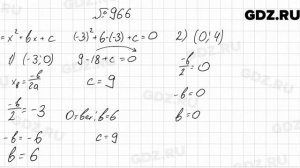 №966
GDZ.RU
= x² + bx + c
(-3)² + 6·(-3) + c = 0
2) (0; 4)
1) (-3; 0)
9 - 18 + c = 0
x₀ = -b/2a
c = 9
-b/2 = 0
-b/2 = -3
-b = 0
Ответ: b = 6
b = 0
-b = -6
c = 9
b = 6
GDZ.RU